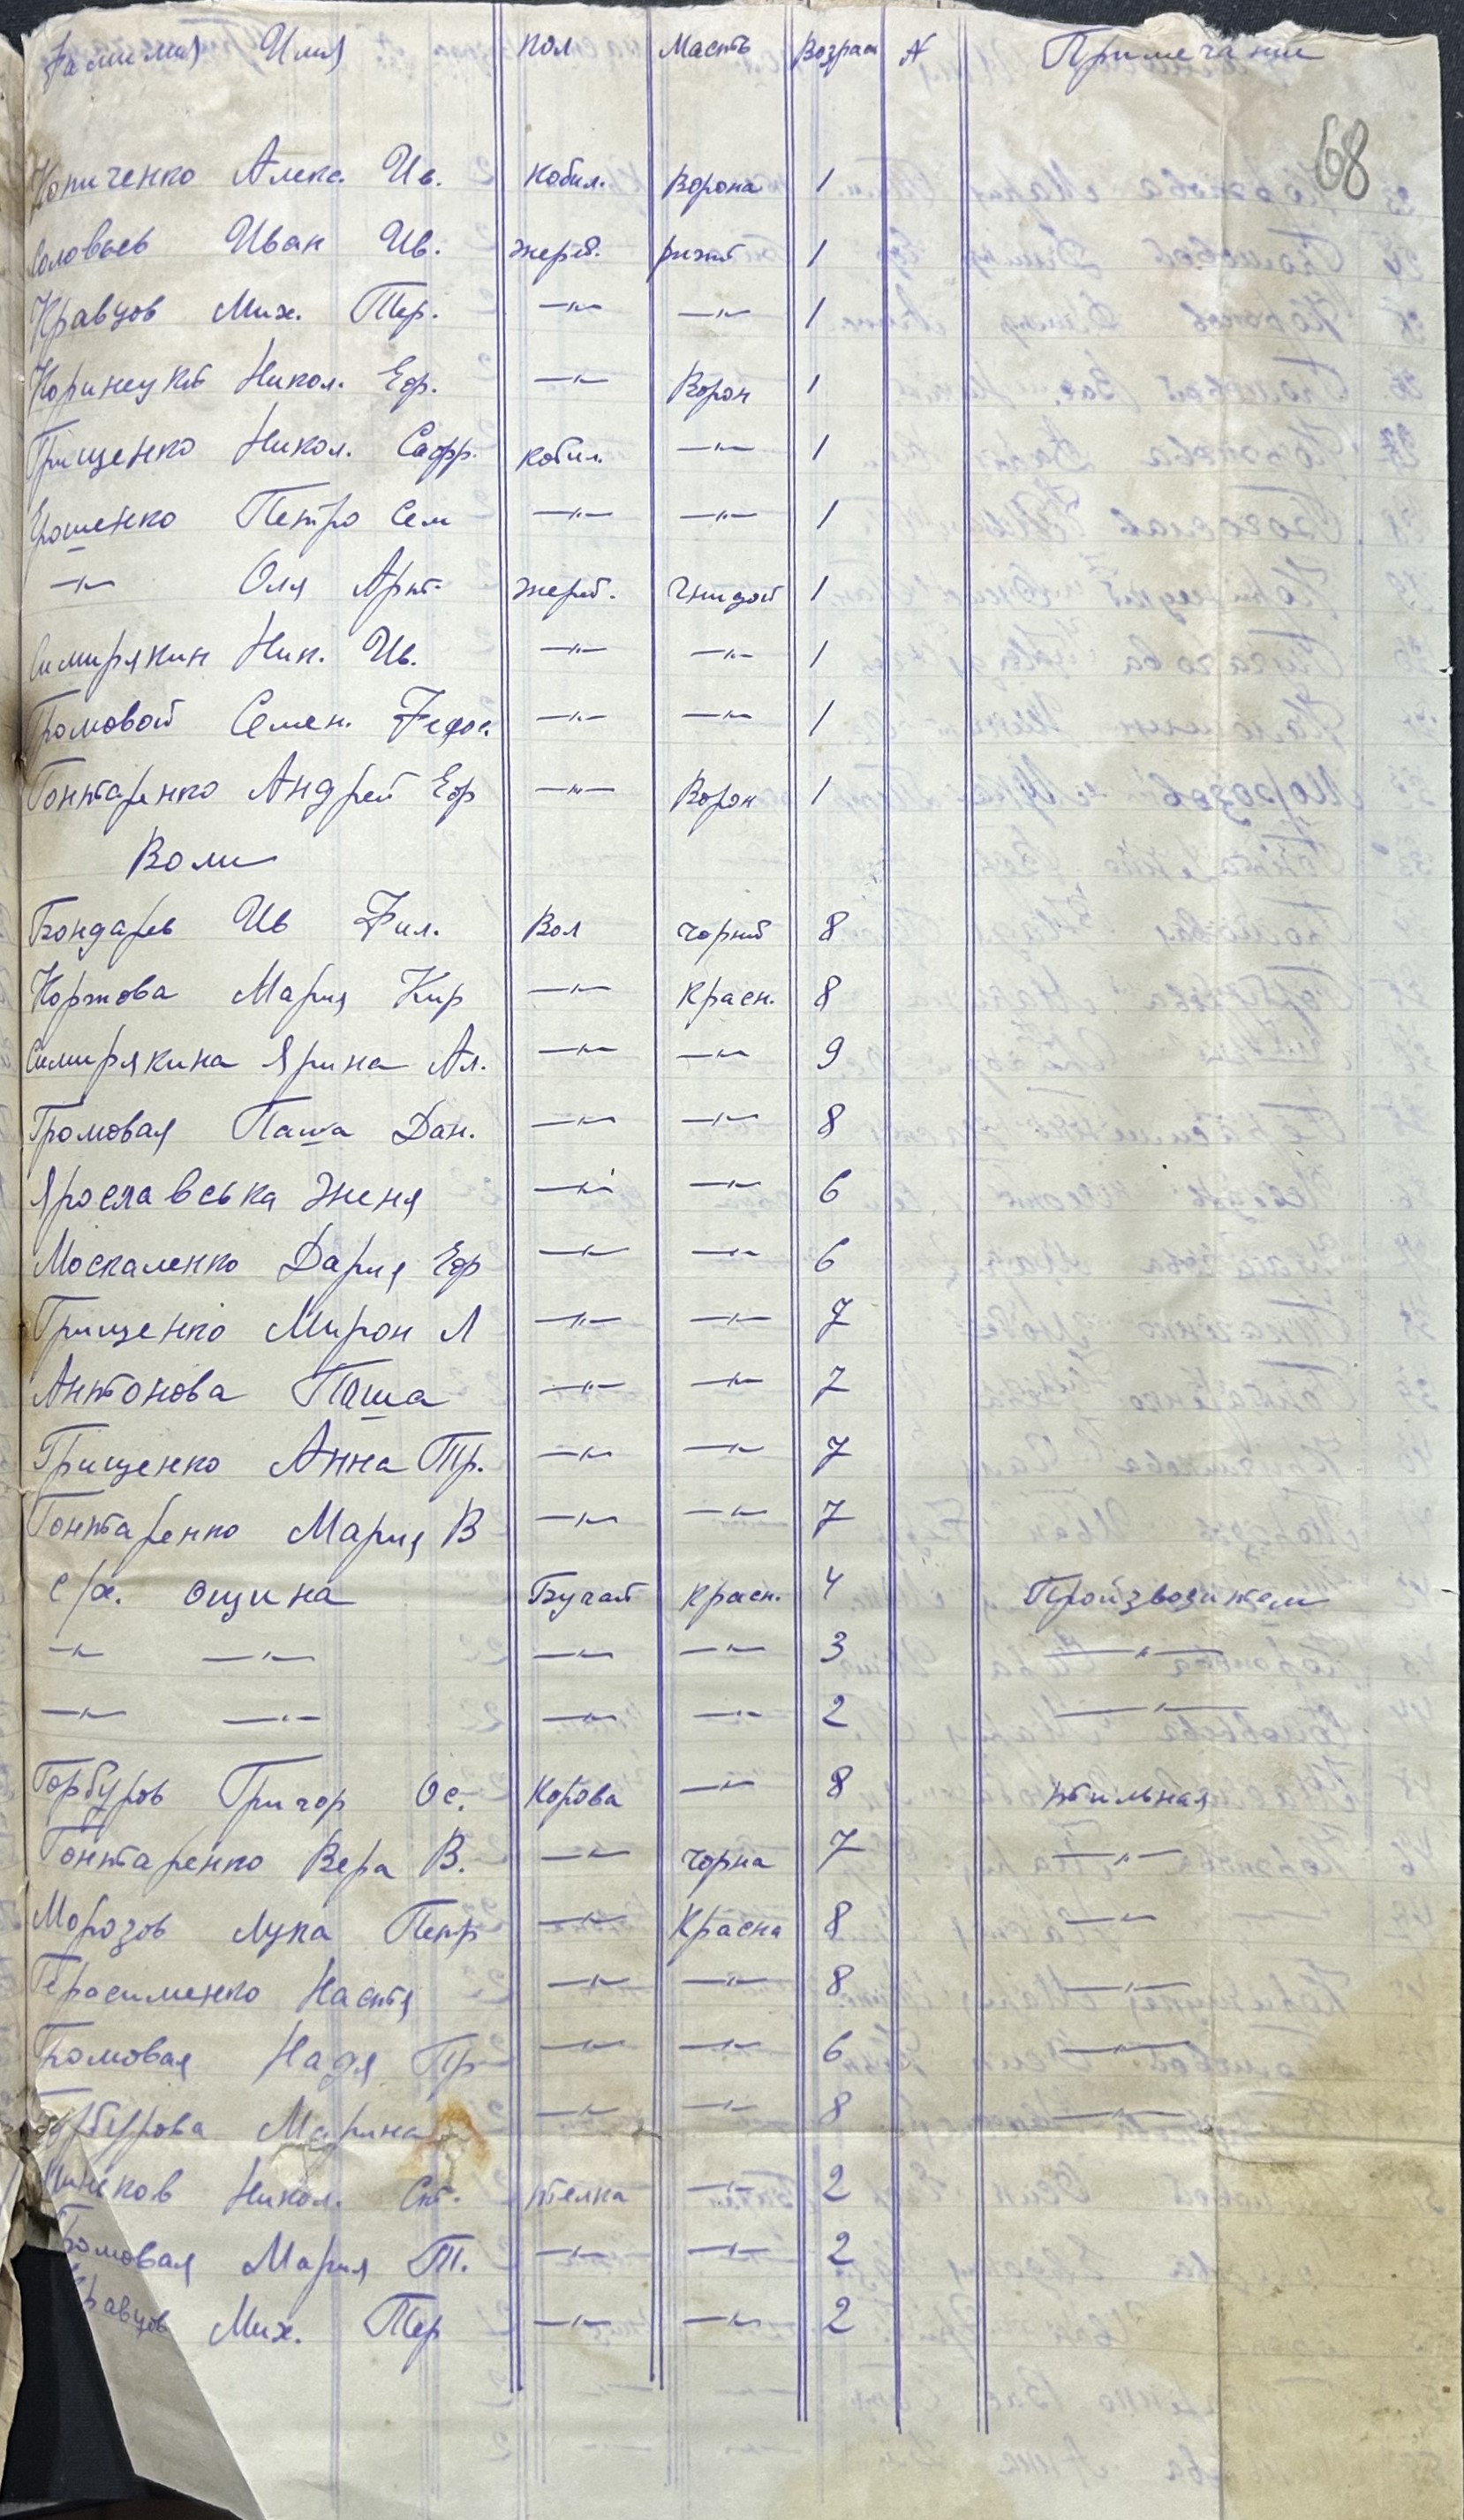 Фамилия Имя пол Масть Возраст N Примечание
68
Копиченко Алекс. Ив. кобил. Ворона 1
Соловьев Иван Ив. жереб. рижий 1
Кравцов Мих. Тер. —"— —"— 1
Коринецкий Никол. Ефр. —"— Ворон 1
Грищенко Никол. Сафр. кобил. —"— 1
Ерошенко Петро Сем —"— —"— 1
—"— Оля Арт. жереб. Гнидой 1
Симирякин Ник. Ив. —"— —"— 1
Громовой Семен. Федос. —"— —"— 1
Гонтаренко Андрей Ефр —"— Ворон 1
Воли
Бондарев Ив Фил. Вол Чорний 8
Коржова Мария Кир —"— Красн. 8
Симирякина Ярина Ал. —"— —"— 9
Громовая Паша Дан. —"— —"— 8
Ярославська Женя —"— —"— 6
Москаленко Дария Ефр —"— —"— 6
Грищенко Мирон Л —"— —"— 7
Антонова Паша —"— —"— 7
Грищенко Анна Тр. —"— —"— 7
Гонтаренко Мария В —"— —"— 7
с/х. ощина Бугай Красн. 4 Производители
—"— —"— —"— —"— 3 —"—
—"— —"— —"— —"— 2 —"—
Горбуров Григор Ос. Корова —"— 8 тильная
Гонтаренко Вера В. —"— Чорна 7 —"—
Морозов Лука Петр —"— Красна 8 —"—
Герасименко Настя —"— —"— 8 —"—
Громовая Надя Пр —"— —"— 6 —"—
Горбурова Марина —"— —"— 8 —"—
Никол. Ст. телка —"— 2
Громовая Мария Т. —"— —"— 2
Кравцов Мих. Тер —"— —"— 2